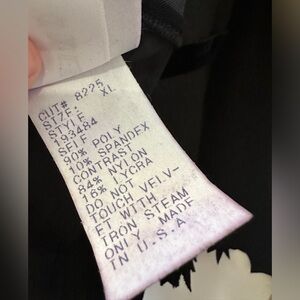 CUT# 8225
SIZE: XL
STYLE
193484
SELF
90% POLY
10% SPANDEX
CONTRAST
84% NYLON
16% LYCRA
DO NOT
TOUCH VELV-
ET WITH
IRON STEAM
ONLY MADE
IN U.S.A